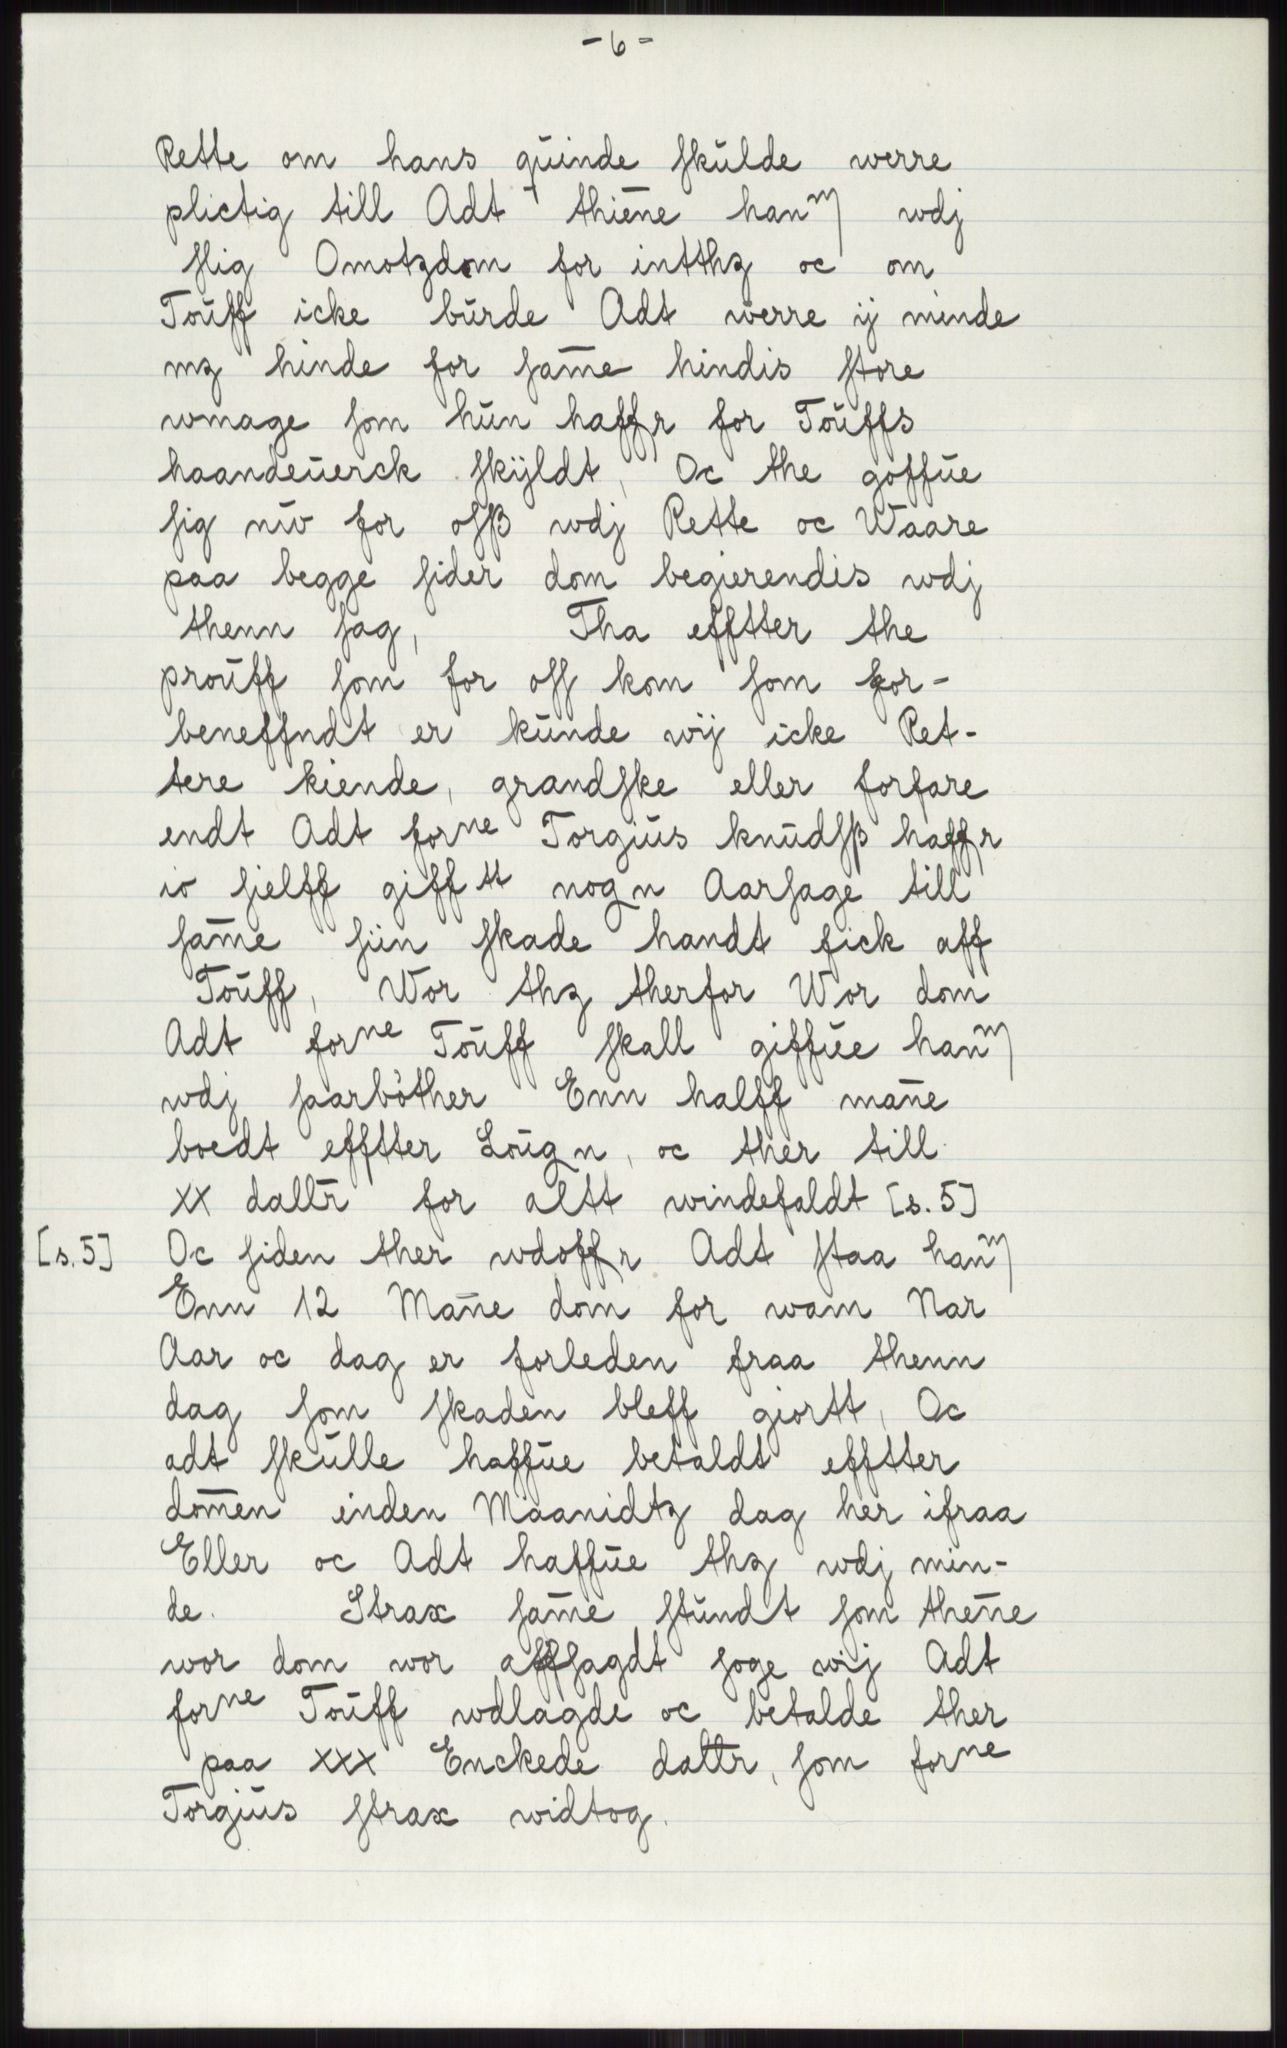 - 6 -
Rette om hans quinde skulde werre
plictig till Adt thiēne hanm wdj
slig Omotzdom for intthz oc om
Touff icke burde Adt werre ij minde
mz hinde for sam̄e hindis store
wmage som hun haffr for Touffs
haandeuerck skyldt, Oc the goffue
sig nw for osß wdj Rette oc Waare
paa begge sider dom begierendis wdj
thenn sag, Tha efftter the
prouff som for oss kom som for-
beneffndt er kunde wij icke Ret-
tere kiende, grandske eller forfare
endt Adt forne Torgius knudsß haffr
io sielff gifftt nogn Aarsage till
sam̄e siin skade handt fick aff
Touff, Wor thz therfor Wor dom
Adt forne Touff skall giffue hanm
wdj saarbøther Enn halff man̄e
boedt efftter Lougn, oc ther till
xx dallr for altt windefaldt [s. 5]
[s. 5] Oc siden ther wdoffr Adt staa hanm
Enn 12 Man̄e dom for wam Nar
Aar oc dag er forleden fraa thenn
dag som skaden bleff giortt, Oc
adt skulle haffue betaldt efftter
dom̄en inden Maanidtz dag her ifraa
Eller oc Adt haffue thz wdj min-
de. Strax sam̄e stundt som then̄e
wor dom wor affsagdt soge wij Adt
forne Touff wdlagde oc betalde ther
paa xxx Enckede dallr, som forne
Torgius strax widtog.